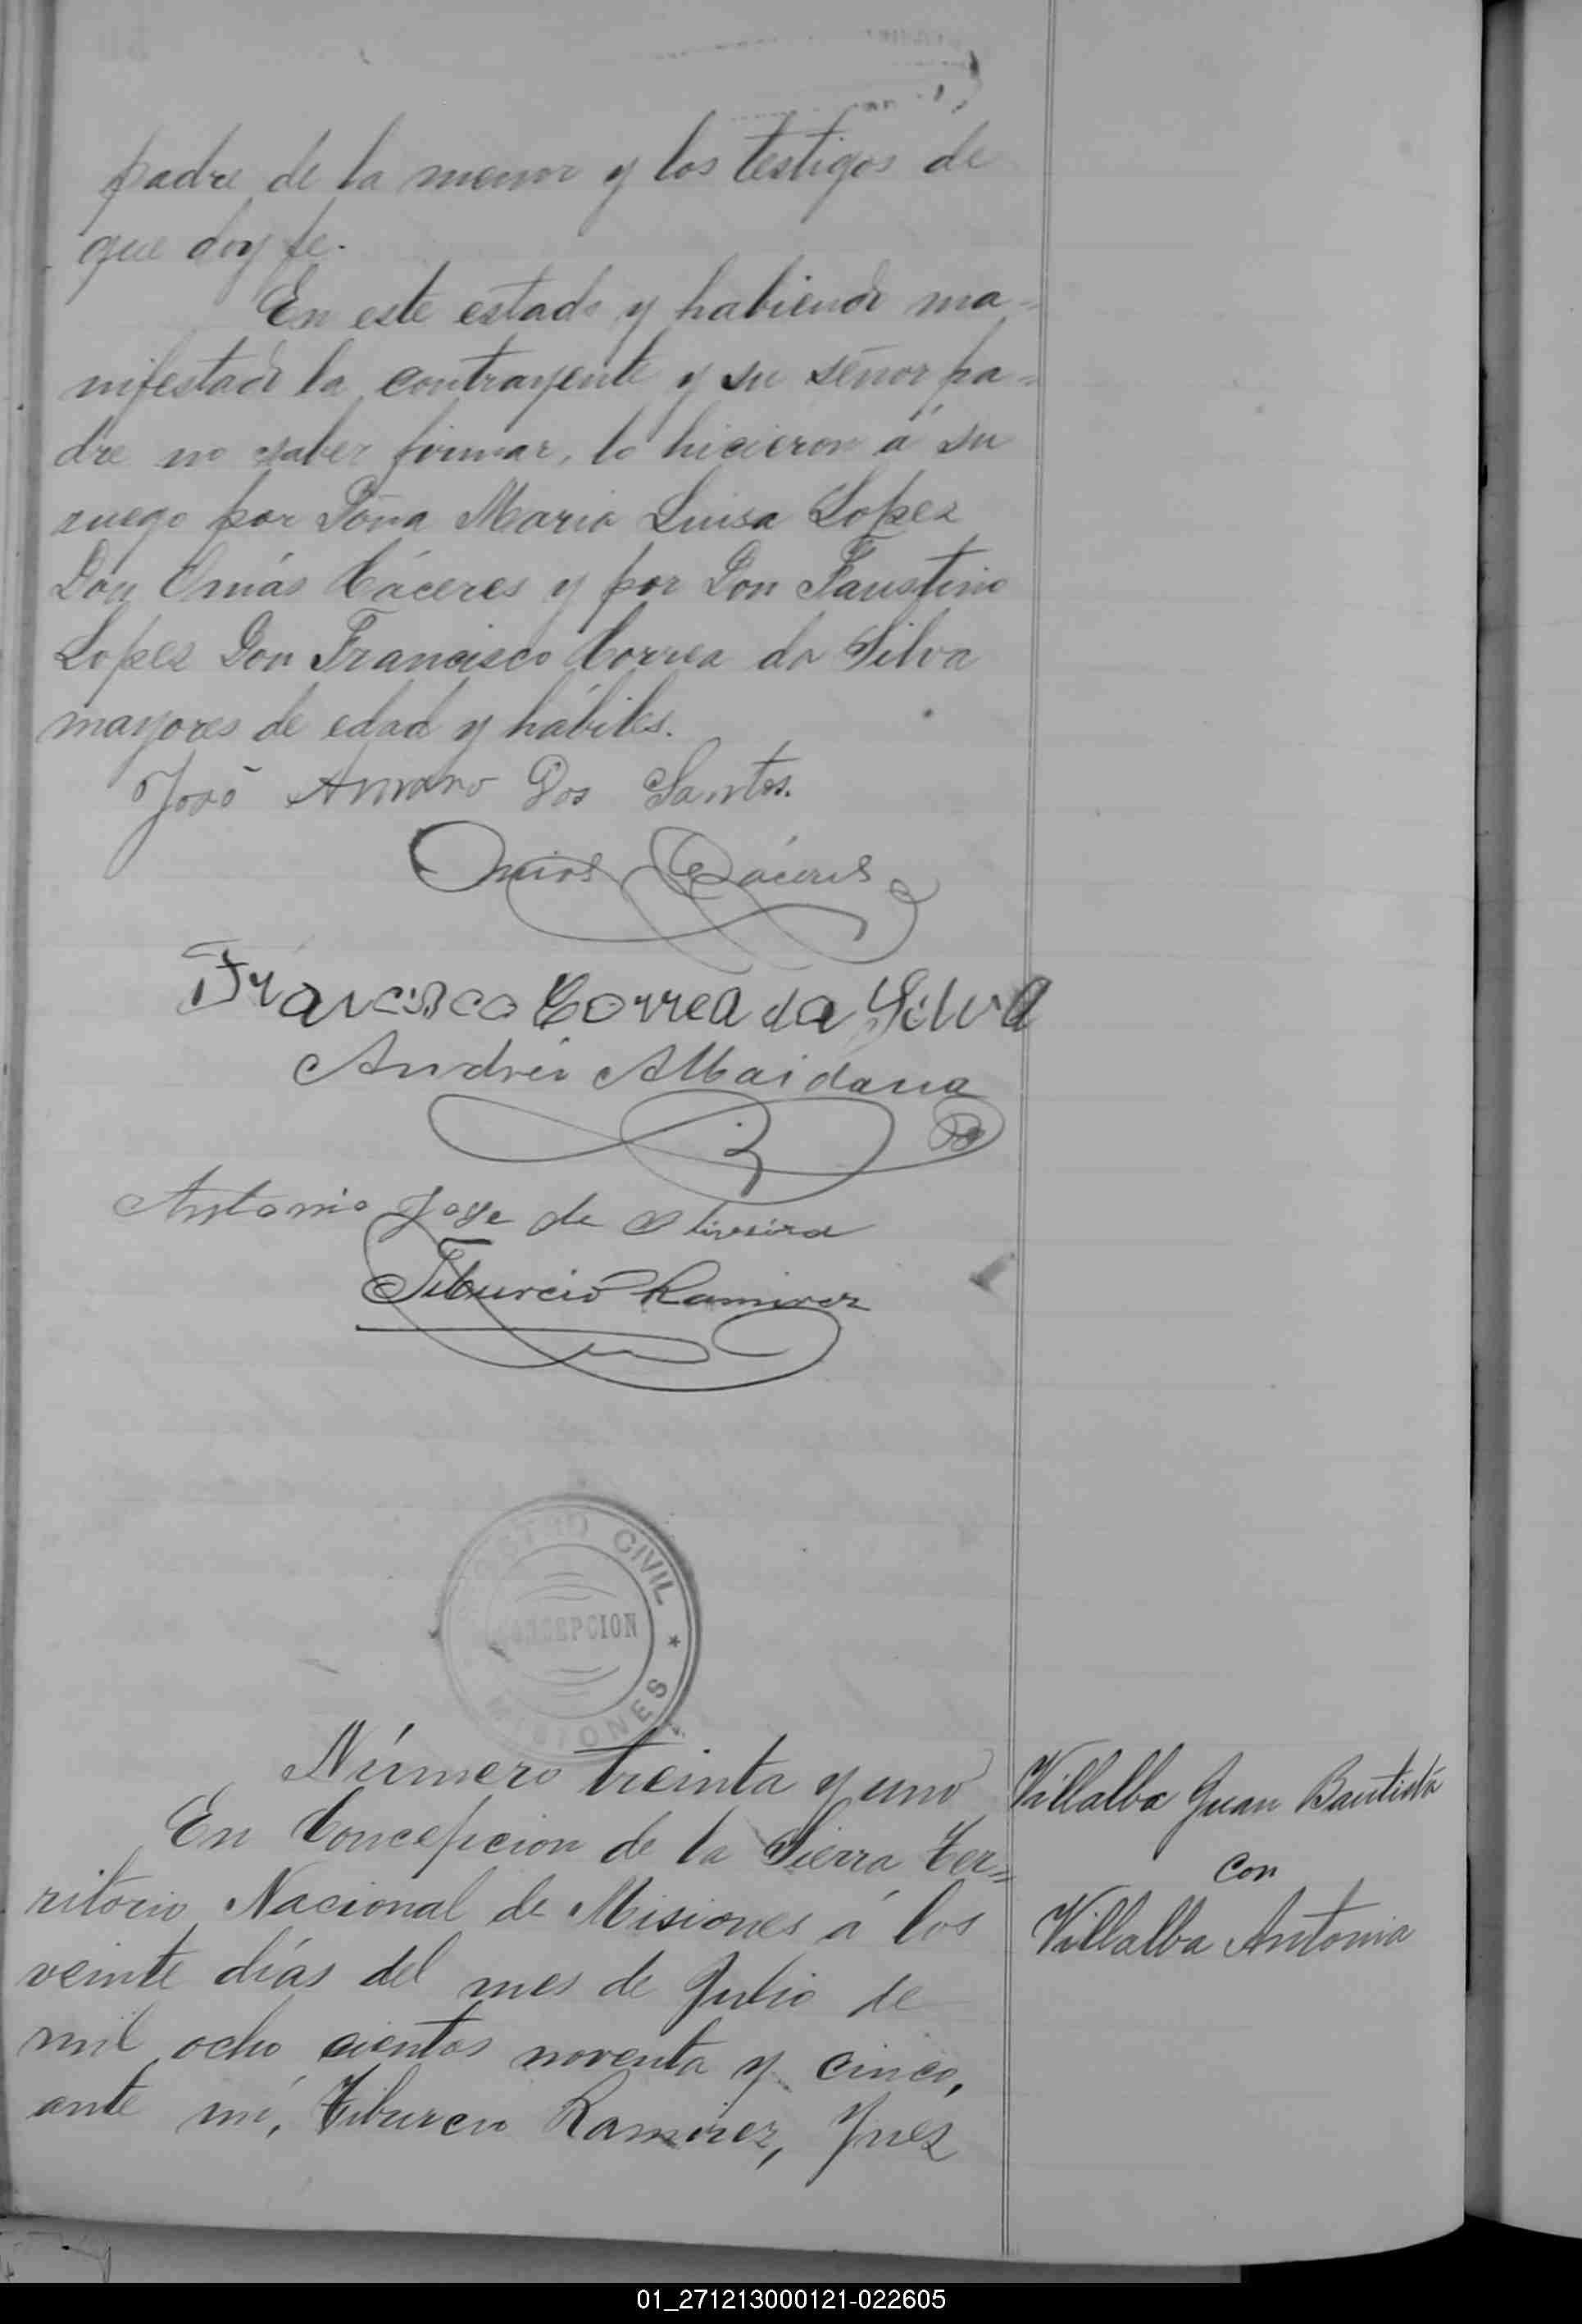 padre de la menor y los testigos de
que doy fe.
En este estado y habiendo ma=
nifestado la contrayente y su señor pa=
dre no saber firmar, lo hicieron á su
ruego por Doña Maria Luisa Lopez
Don Onias Cáceres y por Don Faustino
Lopez Don Francisco Correa da Silva
mayores de edad y hábiles.
João Amaro Dos Santos.
Onias Cáceres
Francisco Correa da Silva
Andrés Albaidana
Antonio Jose de Oliveira
Tiburcio Ramirez
REGISTRO CIVIL
CONCEPCION
MISIONES
Número treinta y uno
En Concepcion de la Sierra Ter=
ritorio Nacional de Misiones á los
veinte días del mes de Julio de
mil ocho cientos noventa y cinco,
ante mí, Tiburcio Ramirez, Juez
Villalba Juan Bautista
con
Villalba Antonia
01_271213000121-022605